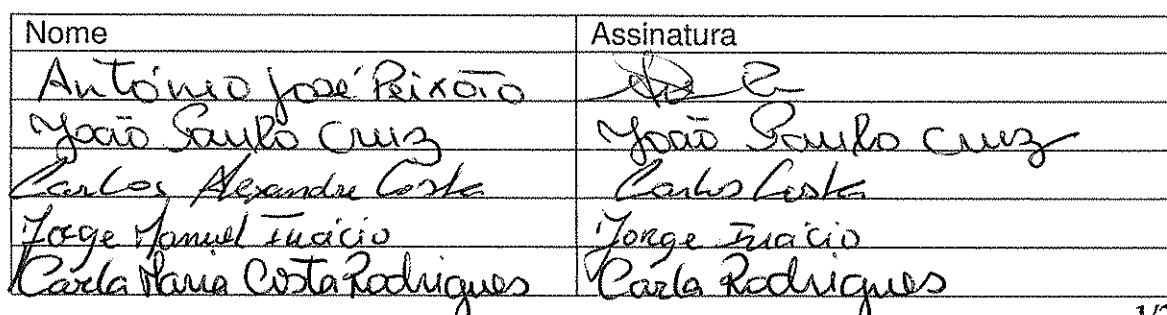 Nome Assinatura
António José Peixoto
João Paulo Cruz João Paulo Cruz
Carlos Alexandre Costa Carlos Costa
Jorge Manuel Inácio Jorge Inácio
Carla Maria Costa Rodrigues Carla Rodrigues